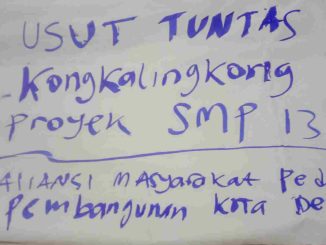 USUT TUNTAS
- Kongkalingkong
proyek SMP 13
ALIANSI MASYARAKAT Ped
pembangunan kota De